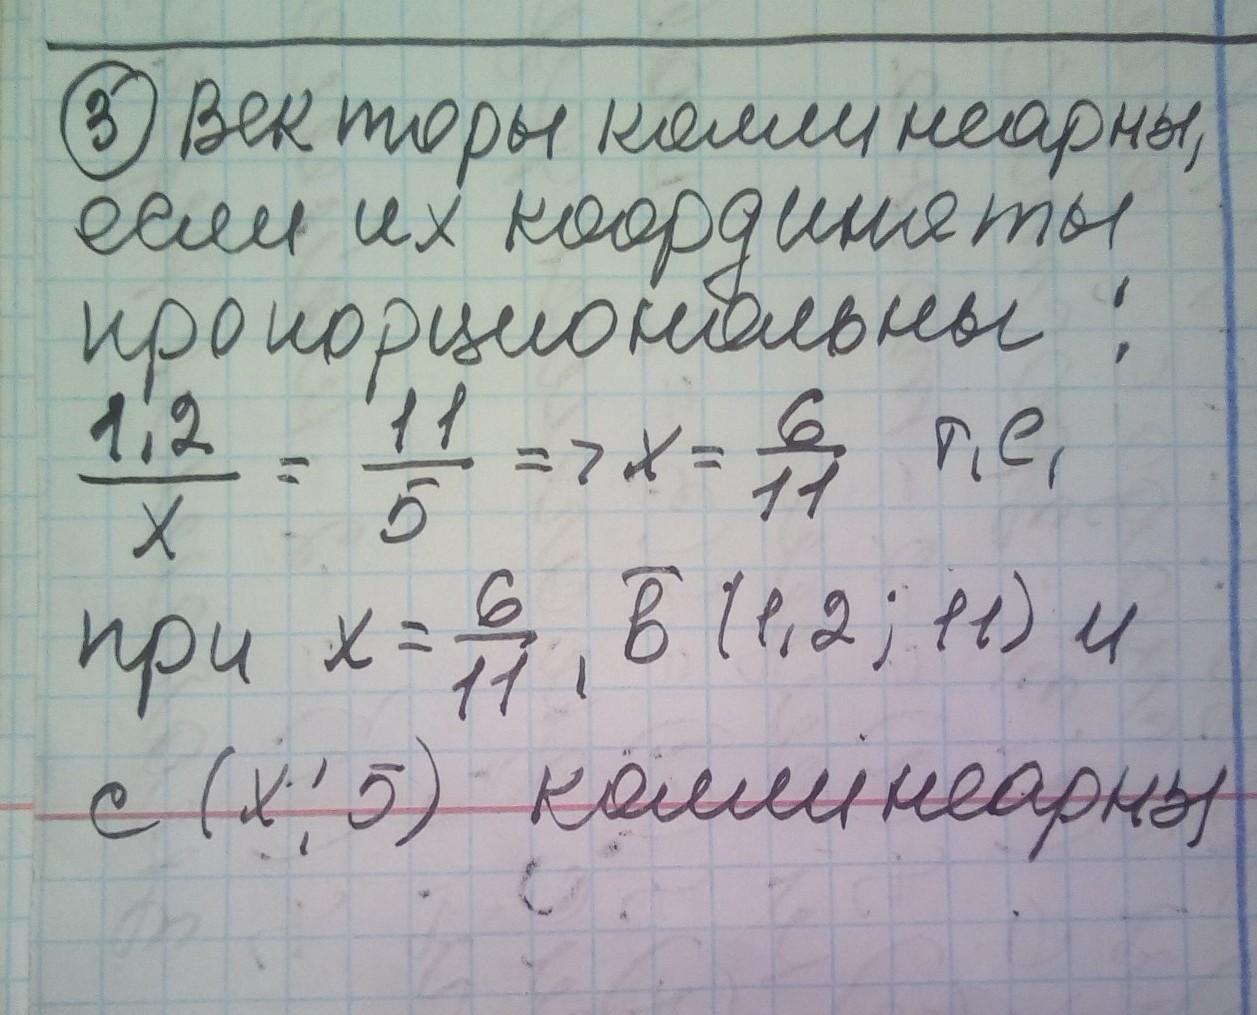 ③ Векторы коллинеарны,
если их координаты
пропорциональны:
1,2/x = 11/5 => x = 6/11 т,е,
при x = 6/11, b̅ (1,2; 11) и
c (x; 5) коллинеарны